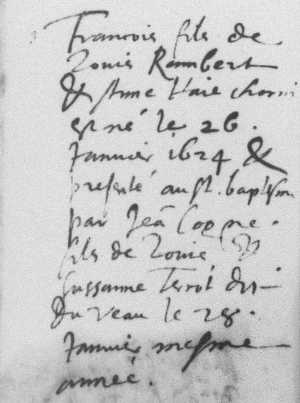 Francois fils de
Louis Rambert
& Anne Marie
est né le 26.
Januier 1624 &
presenté au St. baptesme
par Jeã Cogne.
fils de Louis &
Sussanne
Du veau le 28.
Januier mesme
année.